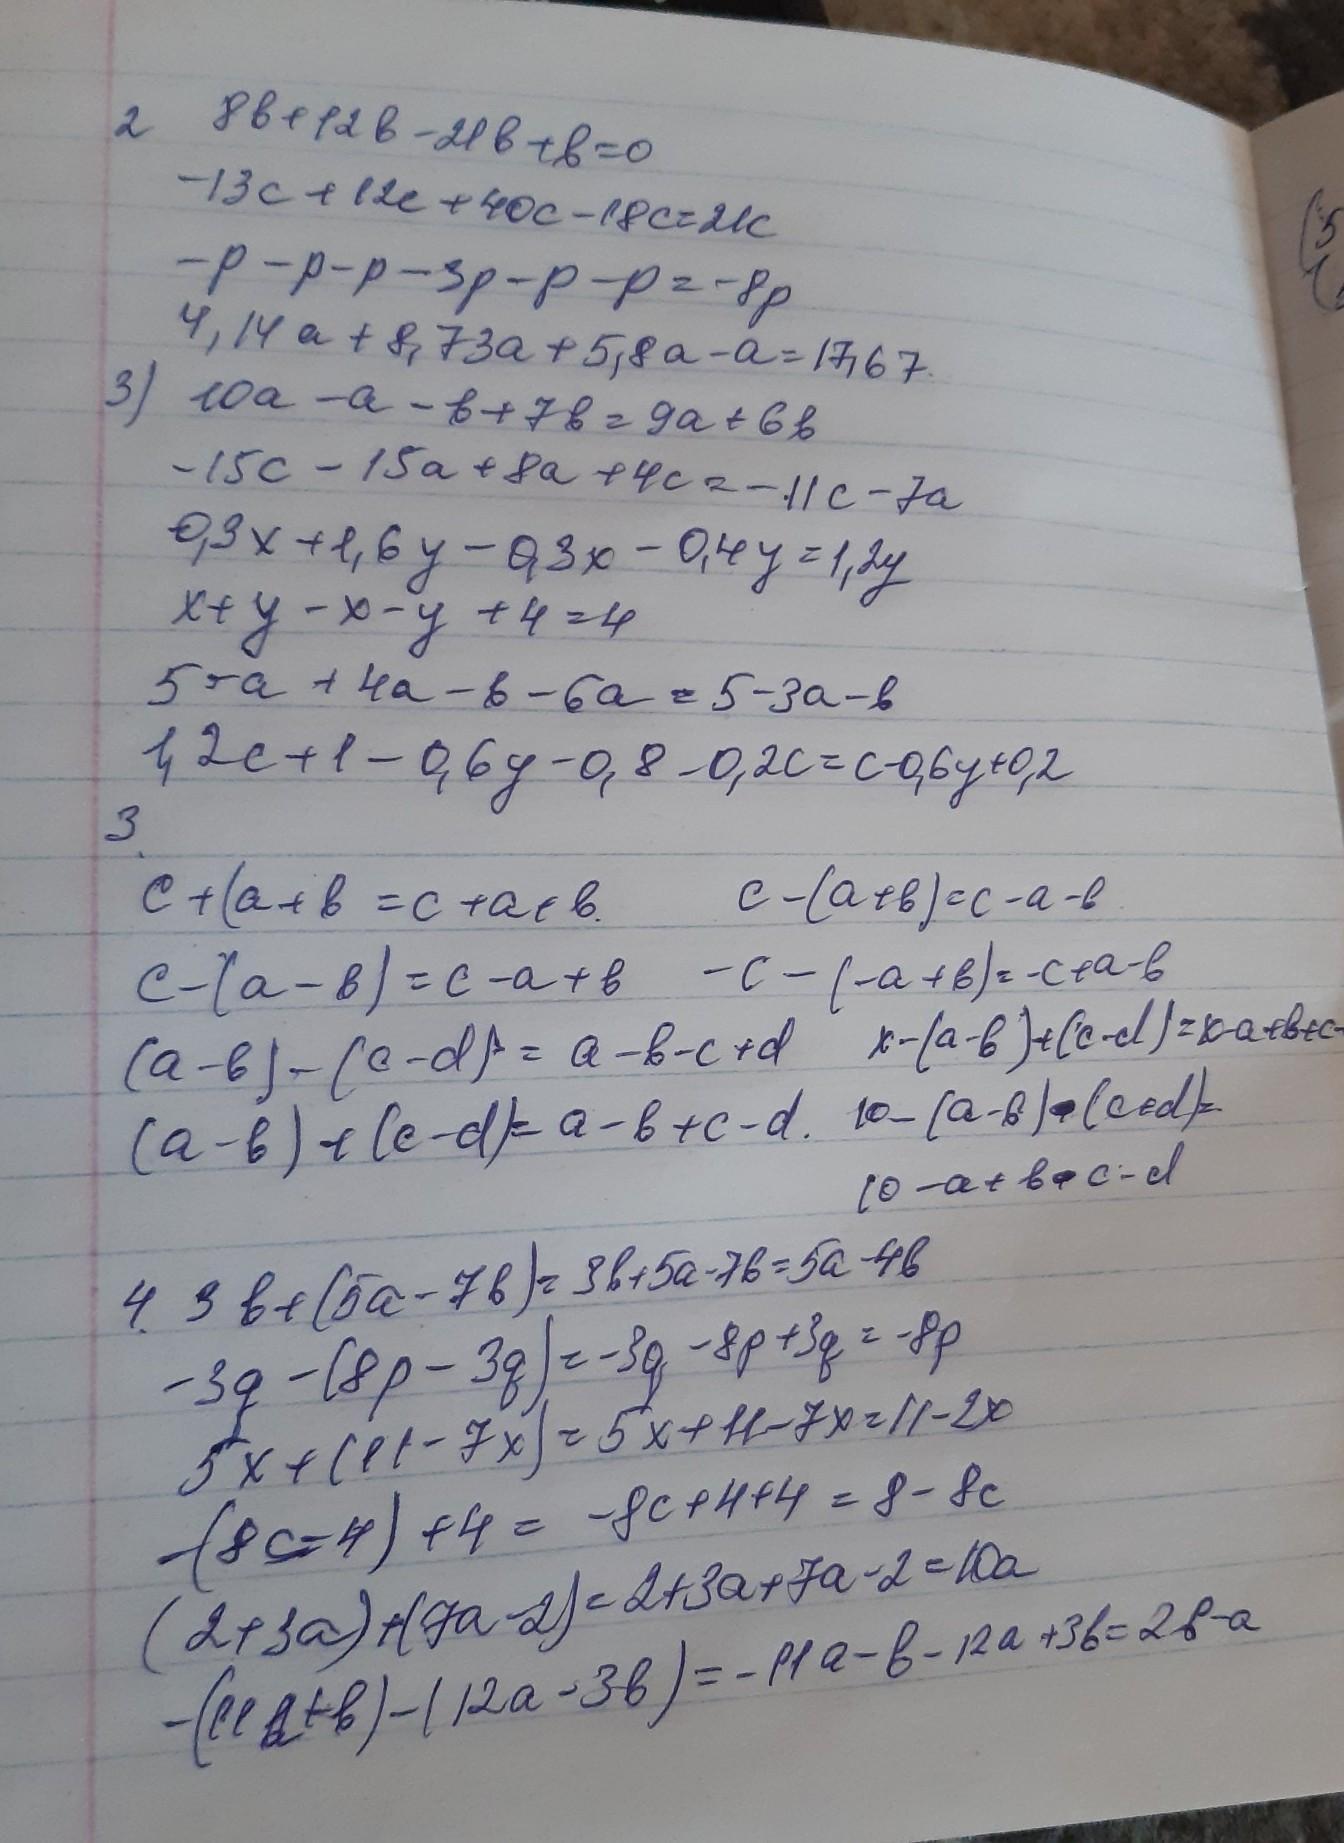 2 8в+12в-21в+в=0
-13c+12c+40c-18c=21c
-p-p-p-3p-p-p=-8p
4,14a+8,73a+5,8a-a=17,67.
3) 10a-a-в+7в=9a+6в
-15c-15a+8a+4c=-11c-7a
0,3x+1,6y-0,3x-0,4y=1,2y
x+y-x-y+4=4
5-a+4a-в-6a=5-3a-в
1,2c+1-0,6y-0,8-0,2c=c-0,6y+0,2
3.
c+(a+в =c+a+в. c-(a+в)=c-a-в
c-(a-в)=c-a+в -c-(-a+в)=-c+a-в
(a-в)-(c-d)=a-в-c+d x-(a-в)+(c-d)=x-a+в+c-
(a-в)+(c-d)=a-в+c-d. 10-(a-в)-(c+d)=
10-a+в-c-d
4. 3в+(5a-7в)=3в+5a-7в=5a-4в
-3q-(8p-3q)=-3q-8p+3q=-8p
5x+(11-7x)=5x+11-7x=11-2x
-(8c-4)+4=-8c+4+4=8-8c
(2+3a)+(7a-2)=2+3a+7a-2=10a
-(11a+в)-(12a-3в)=-11a-в-12a+3в=2в-a